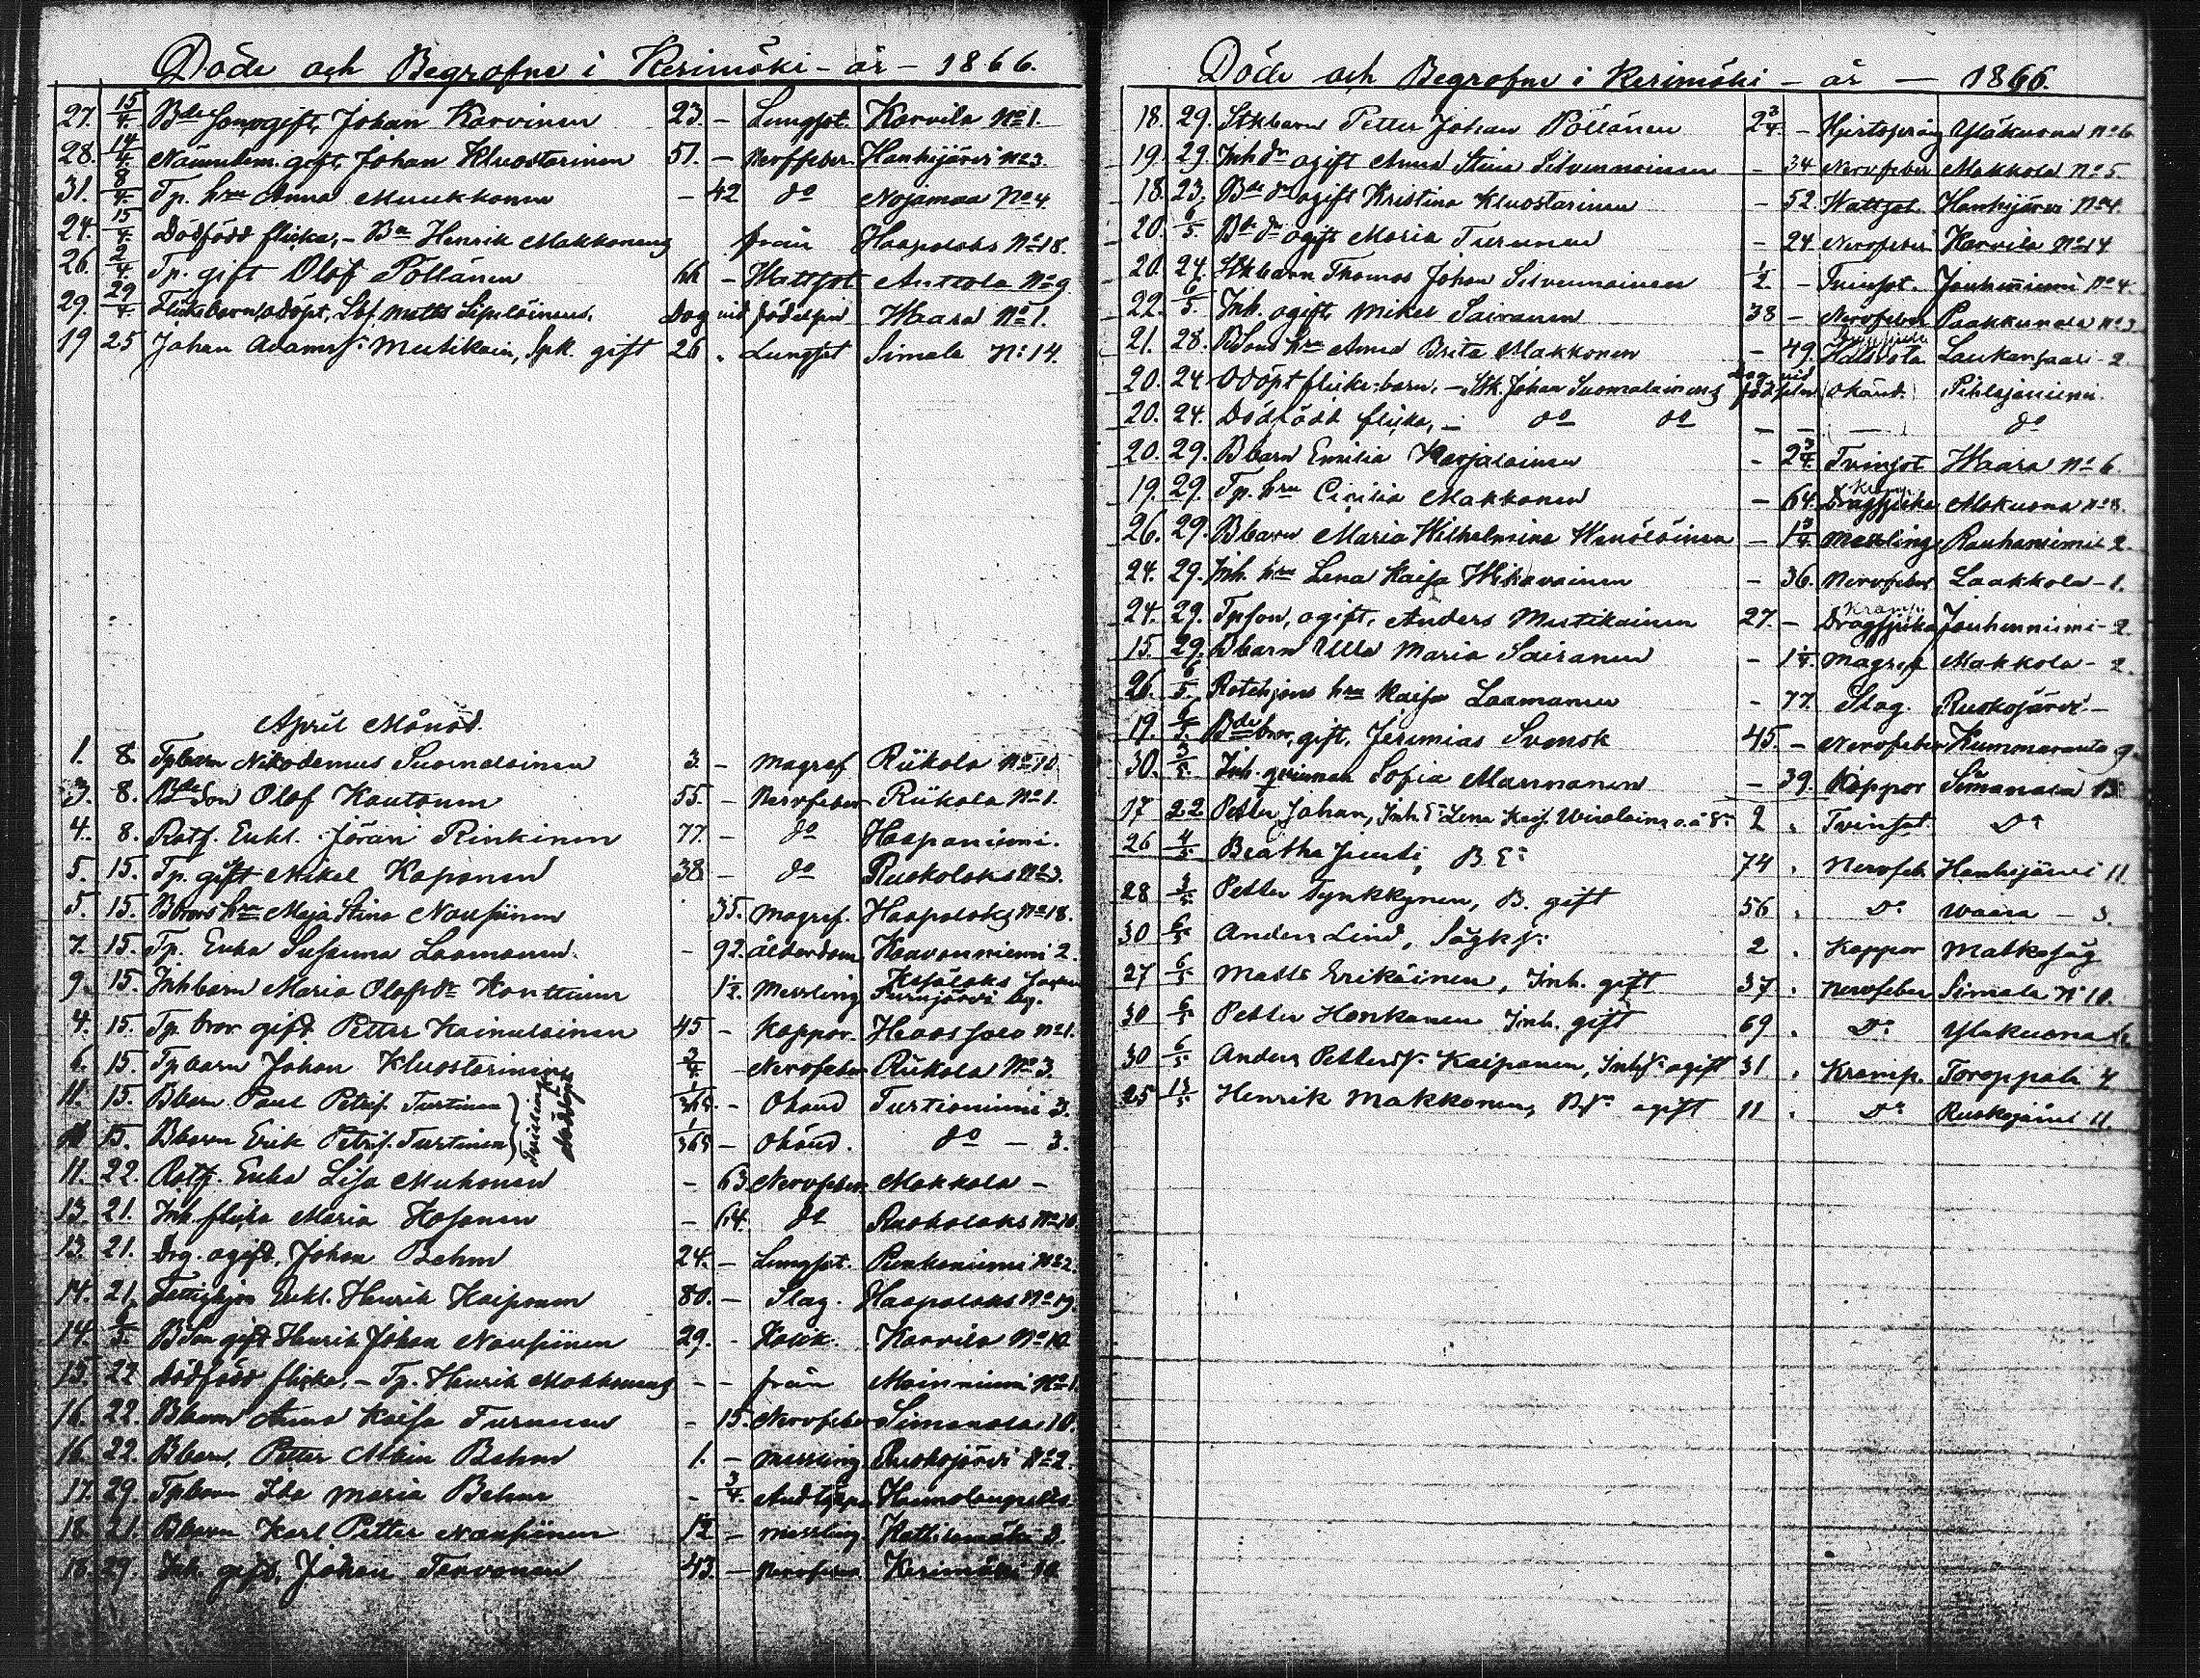 Döde och Begrafne i Kerimäki - år - 1866.
27. 15/4. Bde son ogift, Johan Karvinen 23. - Lungsot. Karvila No 1.
28. 14/4. Nämndem. gift, Johan Kluostarinen 51. - Nervfeber. Hanhijärvi No 3.
31. 8/4. Tp. hru Anna Muukkonen - 42 do Nojamaa No 4.
24. 15/4. Dödfödd flicka, - Bn Henrik Makkonens från Haapalaks No 18.
26. 2/4. Tp. gift Olof Pöllänen 66 - Wattsot Anttola No 9
29. 29/4. Flickebarn, odöpt, Matts Dog vid födseln Waara No 1.
19 25 Johan Adamss. Mutikain, Spk. gift 26 . Lungsot Simala No 14.
April Månad.
1. 8. Tpbarn Nikodemus Suomalainen 3. - Magref Riikola No 10
3. 8. Bde Son Olof Kautonen 55. - Nervfeber Riikola No 1.
4. 8. Rotf. Enkl. Jöran Rinkinen 77. - do Haapaniemi.
5. 15. Tp. gift Mikel Kaponen 38 - do Ruokolaks No 3.
5. 15. Brors hru Maja Stina Nousiinen 35. Magref. Haapalaks No 18.
7. 15. Tp. Enka Susanna Laamanen. - 92. ålderdom Kaavanniemi 2.
9. 15. Inhbarn Maria Olofsdr Kontinen 1 1/2. Messling
4. 15. Tp. bror gift Petter Kainulainen 45 - Koppor. No 1.
6. 15. Tpbarn Johan Kluostarinen 2/4 - Nervfeber Riikola No 3.
11. 15. Bbarn Paul Petriss. Turtinen 1/365. - Okänd Turtioniemi 3.
11 15. Bbarn Erik Petriss. Turtinen 1/365 - Okänd. do - 3.
11. 22. Rotf. Enka Lisa Muhonen - 63. Nervfeber Makkola -
13. 21. Inh. flicka Maria Kosonen - 64. do Ruokolaks No 16.
13. 21. Drg. ogift, Johan Behm 24. - Lungsot. Punkaniemi No 2.
14. 21. Fattighjon Enkl. Henrik Kaiponen 80. - Slag. Haapalaks No 19.
14. 6/5 BSon gift Henrik Johan Nousiinen 29. - Kolik. Karvila No 10
15. 22 Dödfödd flicka. - Tp. Henrik Makkonens - - från Moinniemi No 1.
16. 22. Bbarn Anna Kaisa Turunen - 15. Nervfeber Simanala 10.
16. 22. Bbarn, Petter Albin Behm 1. - Messling. Ruokojärvi No 2.
17. 29. Tpbarn Ida Maria Behm - 3/4. Andtäppa
18. 21. Bbarn Karl Petter Nousiinen 1 1/2 - Messling. 3.
18. 29. Inh. gift, Johan Tervonen 43. - Nervfeber. Kerimäki 10.
Döde och Begrafne i Kerimäki - år - 1866.
18. 29. Stkbarn Petter Johan Pöllänen 2 3/4. - Hjertsprång Yläkuona No 6.
19. 29. Inh dr ogift Anna Stina Silvennoinen - 34 Nervfeber Makkola No 5.
18. 23. Bde dr ogift Kristina Kluostarinen - 52. Wattsot. Hanhijärvi No 4.
20. 6/5. Bde dr ogift Maria Turunen - 24 Nervfeber Karvila No 14
20. 24. Stkbarn Thomas Johan Silvennoinen 1/2 - Tvinsot. Jouhenniemi No 4.
22. 6/5. Inh. ogift, Mikel Sairanen 38 - Nervfeber Paakkunala No 3
21. 28. BSons hru Anna Brita Makkonen - 49. Laukansaari - 2
20. 24. Odöpt flicke-barn, - Stk. Johan Suomalainens Dog vid födseln okänd. Pihlajaniemi.
20. 24. Dödfödd flicka, - do do - - - do
20. 29. Bbarn Emilia Karjalainen - 2 3/4. Tvinsot Waara No 6.
19. 29. Tp. hru Cicilia Makkonen - 64. Dragsjuka Alakuona No 8
26. 29. Bbarn Maria Wilhelmina Wänäläinen - 1 3/4 Messling Rauhaniemi 2.
24. 29. Inh. hru Lena Kaisa - 36. Nervfeber Laakkola - 1.
24. 29. Tpson, ogift, Anders Mutikainen 27. - Kramp. Dragsjuka Jouhenniemi - 2.
15. 29. Bbarn Ulla Maria Sairanen - 1 1/4. Magref Makkola - 2.
26. 6/5. Rotehjons hru Kaisa Laamanen - 77. Slag. Ruokojärvi -
19. 6/5. Bde bror, gift, Jeremias Svensk 45. - Nervfeber Kummaranta 9.
30. 5/5. Inh. qvinnan Sofia Marmanen - 39. Koppor Simanala 13.
17 22 Petter Johan, Inh. E. Lena Kais. 2 . Tvinsot. Do
26 4/5 Beatha Juuti, B. E: 74 . Nervfeb. Hanhijärvi 11
28 3/5 Petter Tynkkynen, B. gift 56 . Do Waara - 3.
30 6/5 Anders Lind, Sågk s: 2 . Koppor Matkasåg
27 6/5 Matts Erikäinen, Inh. gift 37 . Nervfeber Simala No 10.
30 6/5 Petter Honkanen Inh. gift 69 . Do Ylakuona 6
30 6/5 Anders Petterss. Kaipanen, Inhs. ogift 31 . Kramp. Toroppala 4
25 13/5 Henrik Makkonen, Bs: ogift 11 . Do Ruokojärvi 11